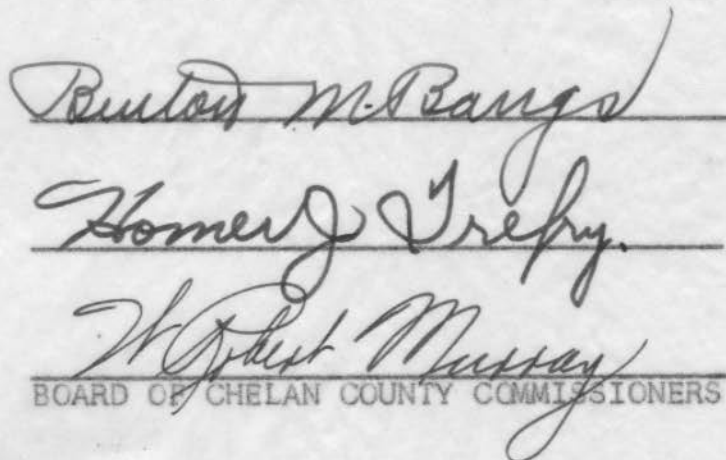 Burton M. Bangs
Homer J Trefry.
W Robert Murray
BOARD OF CHELAN COUNTY COMMISSIONERS